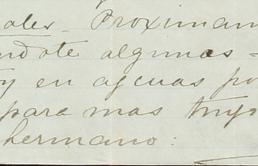 ales. Proximam
ndote algunas -
y en aguas po
para mas
hermano: